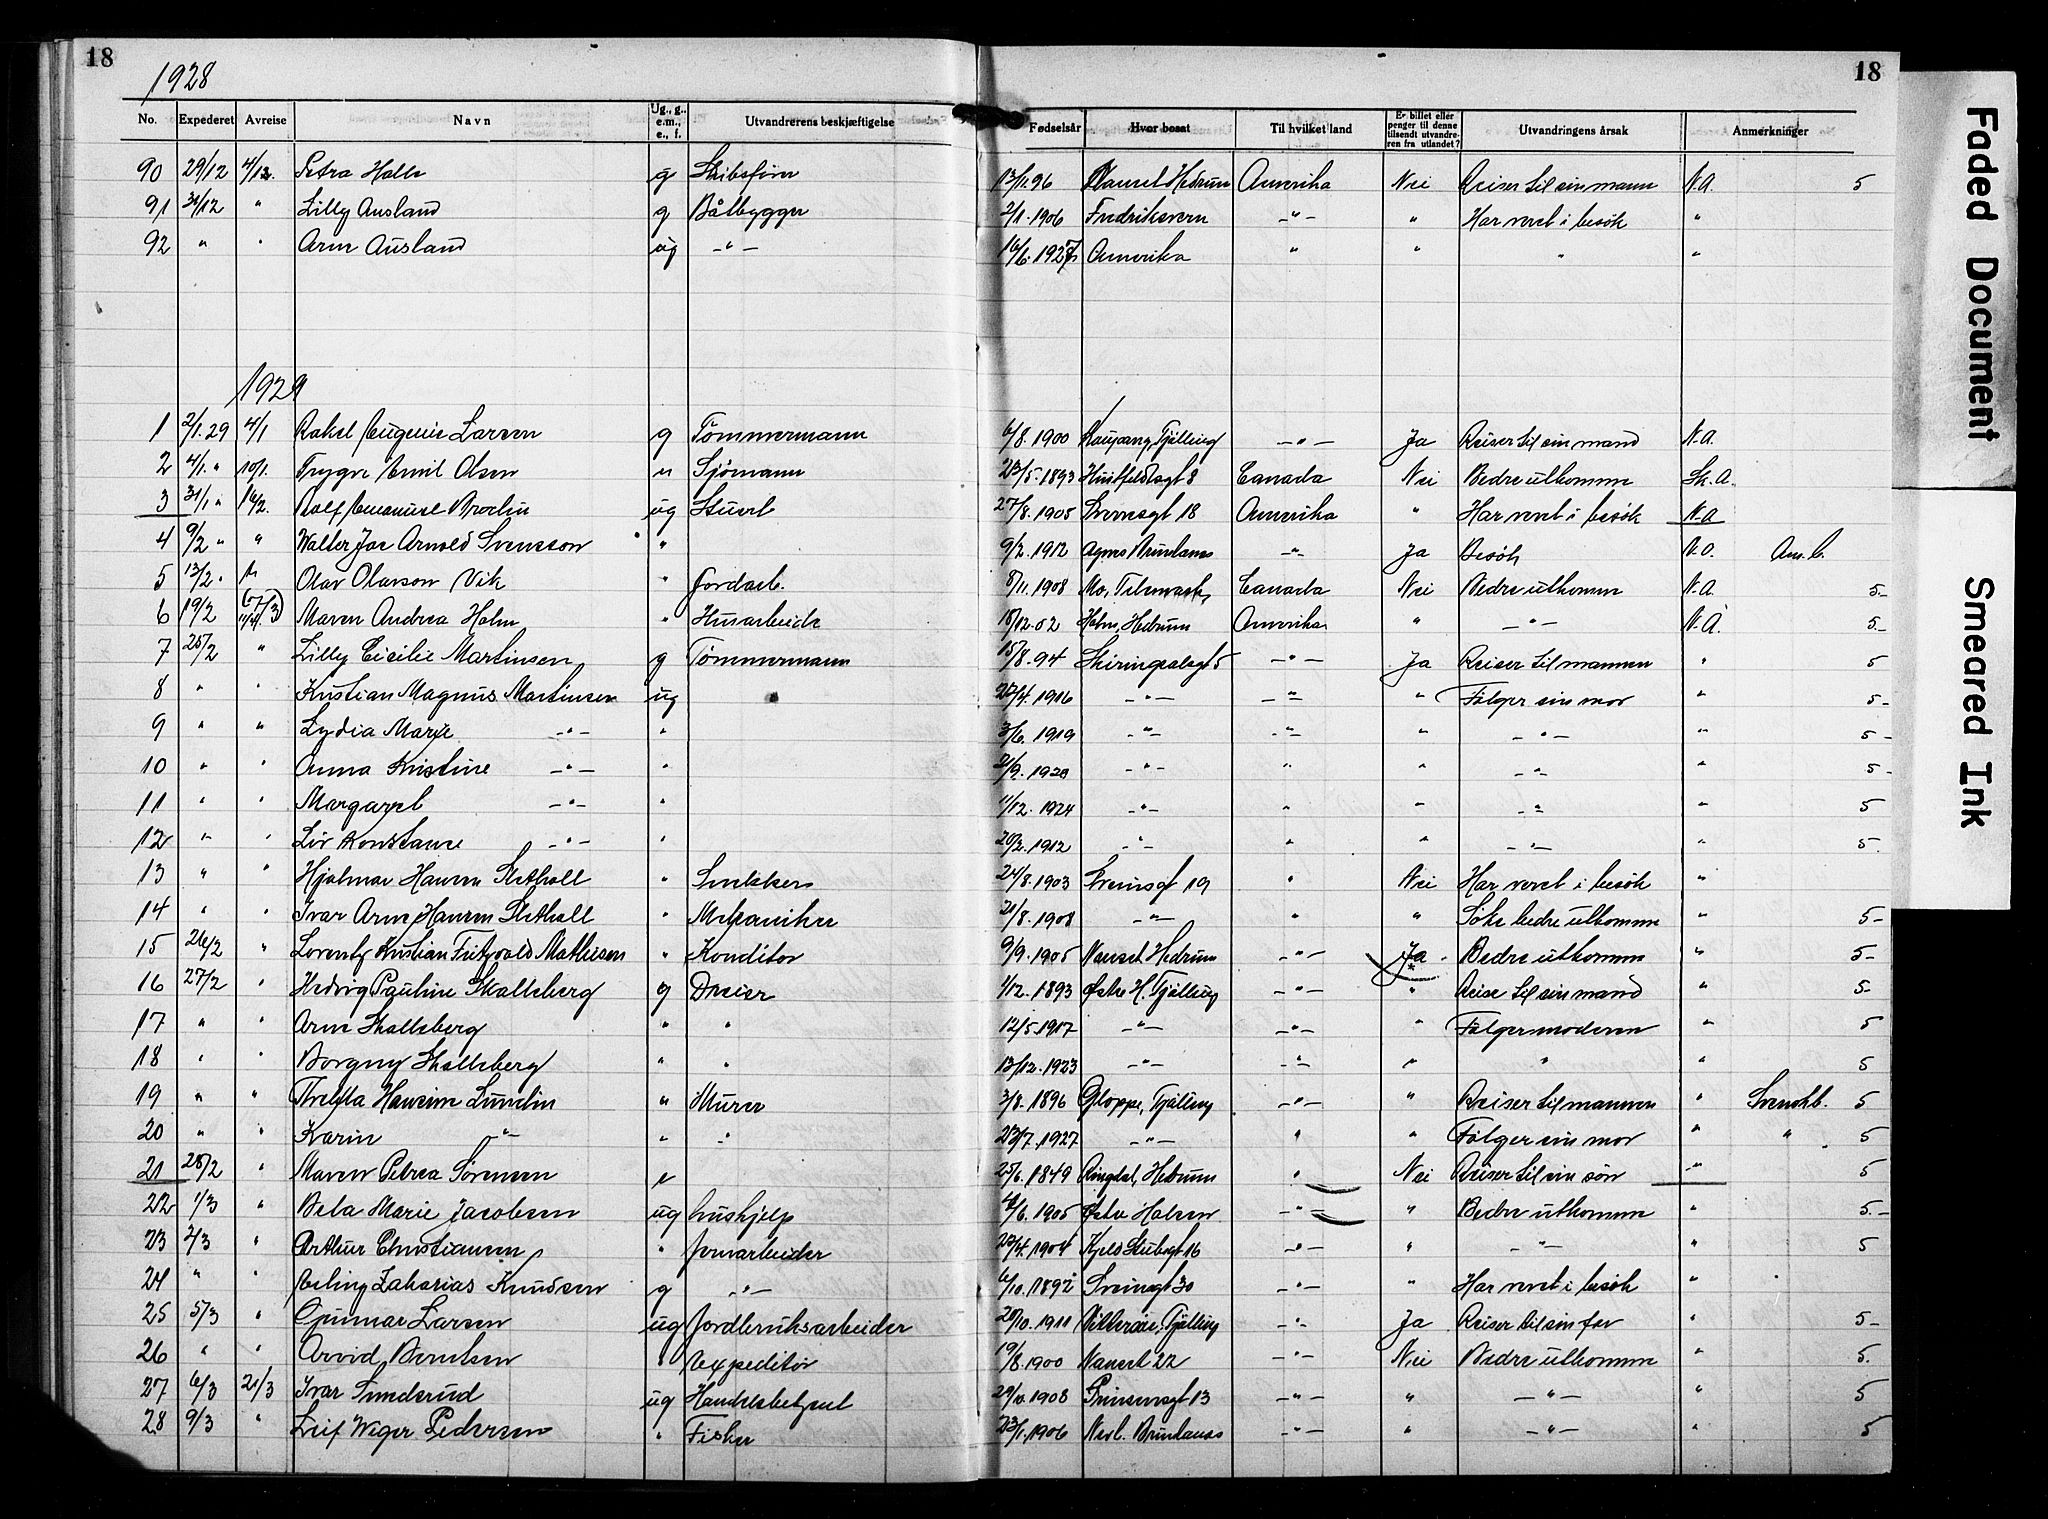 18
1928
18
No. Expederet Avreise Navn Ug., g., e.m., e., f. Utvandrerens beskjæftigelse Fødselsår Hvor bosat Til hvilket land Er billet eller penger til denne tilsendt utvandreren fra utlandet? Utvandringens årsak Anmerkninger
90 29/12 4/12. Petra Halle g Skibsfører 13/11.96 Nanset Hedrum Amerika Nei Reiser til sin mann N.A. 5
91 31/12 " Lilly Ausland g Båtbygger 2/1.1906 Fredriksvern -"- " Har veret i besök "
92 " " Arne Ausland ug -"- 16/6.1927 Amerika " " " "
1929
1 2/1.29 4/1 Rakel Eugenie Larsen g Tømmermann 6/8.1900 Kaupang, Tjølling -"- Ja Reiser til sin mand N.A.
2 4/1. " 10/1. Trygve Emil Olsen " Sjømann 23/5.1893 Huitfeldtsgt 8 Canada Nei Bedre utkomme Sk.A.
3 31/1 " 16/2. Rolf Emanuel Brodin ug Stuert 27/8.1905 Sveinsgt 18 Amerika " Har veret i besök N.A
4 9/2 " " Walter Joe Arnold Svensson " 9/2.1912 Agnes Brunlanes " Ja Besök N.A. Am.b.
5 13/2. " " Olav Olavson Vik " Jordarb. 8/11.1908 Mo, Telemark, Canada Nei Bedre utkomme N.A. 5-
6 19/2 Maren Andrea Holm " Husarbeide 18/12.02 Holm, Hedrum Amerika " -"- N.A. 5-
7 25/2 " Lilly Cicilie Martinsen g Tømmermann 15/8.94 Skiringsalsgt 5 -"- Ja Reiser til mannen " 5
8 " " Kristian Magnus Martinsen ug 25/4.1916 -"- -"- " Følger sin mor " 5-
9 " " Lydia Marie -"- " 3/6.1919 -"- -"- " -"- " 5-
10 " " Anna Kristine -"- " 21/9.1920 -"- " " -"- " 5-
11 " " Margaret -"- " 11/12.1924 -"- " " -"- " 5
12 " " Liv Konstance -"- " 20/2.1912 -"- " " -"- " 5.
13 " " Hjalmar Hansen Slethall " Snekker 24/8.1903 Sveinsgt 19 " Nei Har veret i besök "
14 " " Ivar Arne Hansen Slethall " Mekaniker 21/8.1908 -"- " " Söke bedre utkomme " 5-
15 26/2 " Lorentz Kristian Fritzvold Mathisen " Konditor 9/9.1905 Nanset Hedrum -"- Ja Bedre utkomme " 5-
16 27/2 " Hedvig Pauline Skalleberg g Dreier 1/12.1893 Østre H. Tjølling -"- " Reise til sin mand " 5-
17 " " Arne Skalleberg " " 12/5.1917 -"- -"- " Følger moderen " 5
18 " " Borgny Skalleberg " " 13/12.1923 -"- -"- " " " 5
19 " " Hansine Lundin " Murer 3/8.1896 Gloppe, Tjølling -"- " Reiser til mannen " Svenskb. 5
20 " " Karin " " " 23/7.1927 -"- " " Følger sin mor " " 5
21 28/2 " Maren Petrea Sørensen e 25/6.1849 Ringdal, Hedrum " Nei Reiser til sin sön " 5
22 1/3 " Beta Marie Jacobsen ug hushjelp 4/6.1905 Østre Halsen -"- " Bedre utkomme " 5-
23 2/3 " Arthur Christiansen " Jernarbeider 22/4.1904 Kjeld Stubsgt 16 -"- " -"- " 5
24 " " Erling Zakarias Knudsen g -"- 6/10.1892 Sveinsgt 30 -"- " Har veret i besök "
25 5/3 " Gunnar Larsen ug Jordbruksarbeider 20/10.1911 Tjølling -"- Ja Reiser til sin far " 5-
26 " " Arvid Berntsen " Expeditör 19/8.1900 Nanset 22 -"- Nei Bedre utkomme " 5.
27 6/3 21/3 Ivar Sunderud ug Handelsbetjent 29/10.1908 Prinsensgt 13 -"- " -"- " 5
28 9/3 " Leif Weger Pedersen " Fisker 23/1.1906 Nevl. Brunlanes -"- " -"- " 5
Faded Document
Smeared Ink